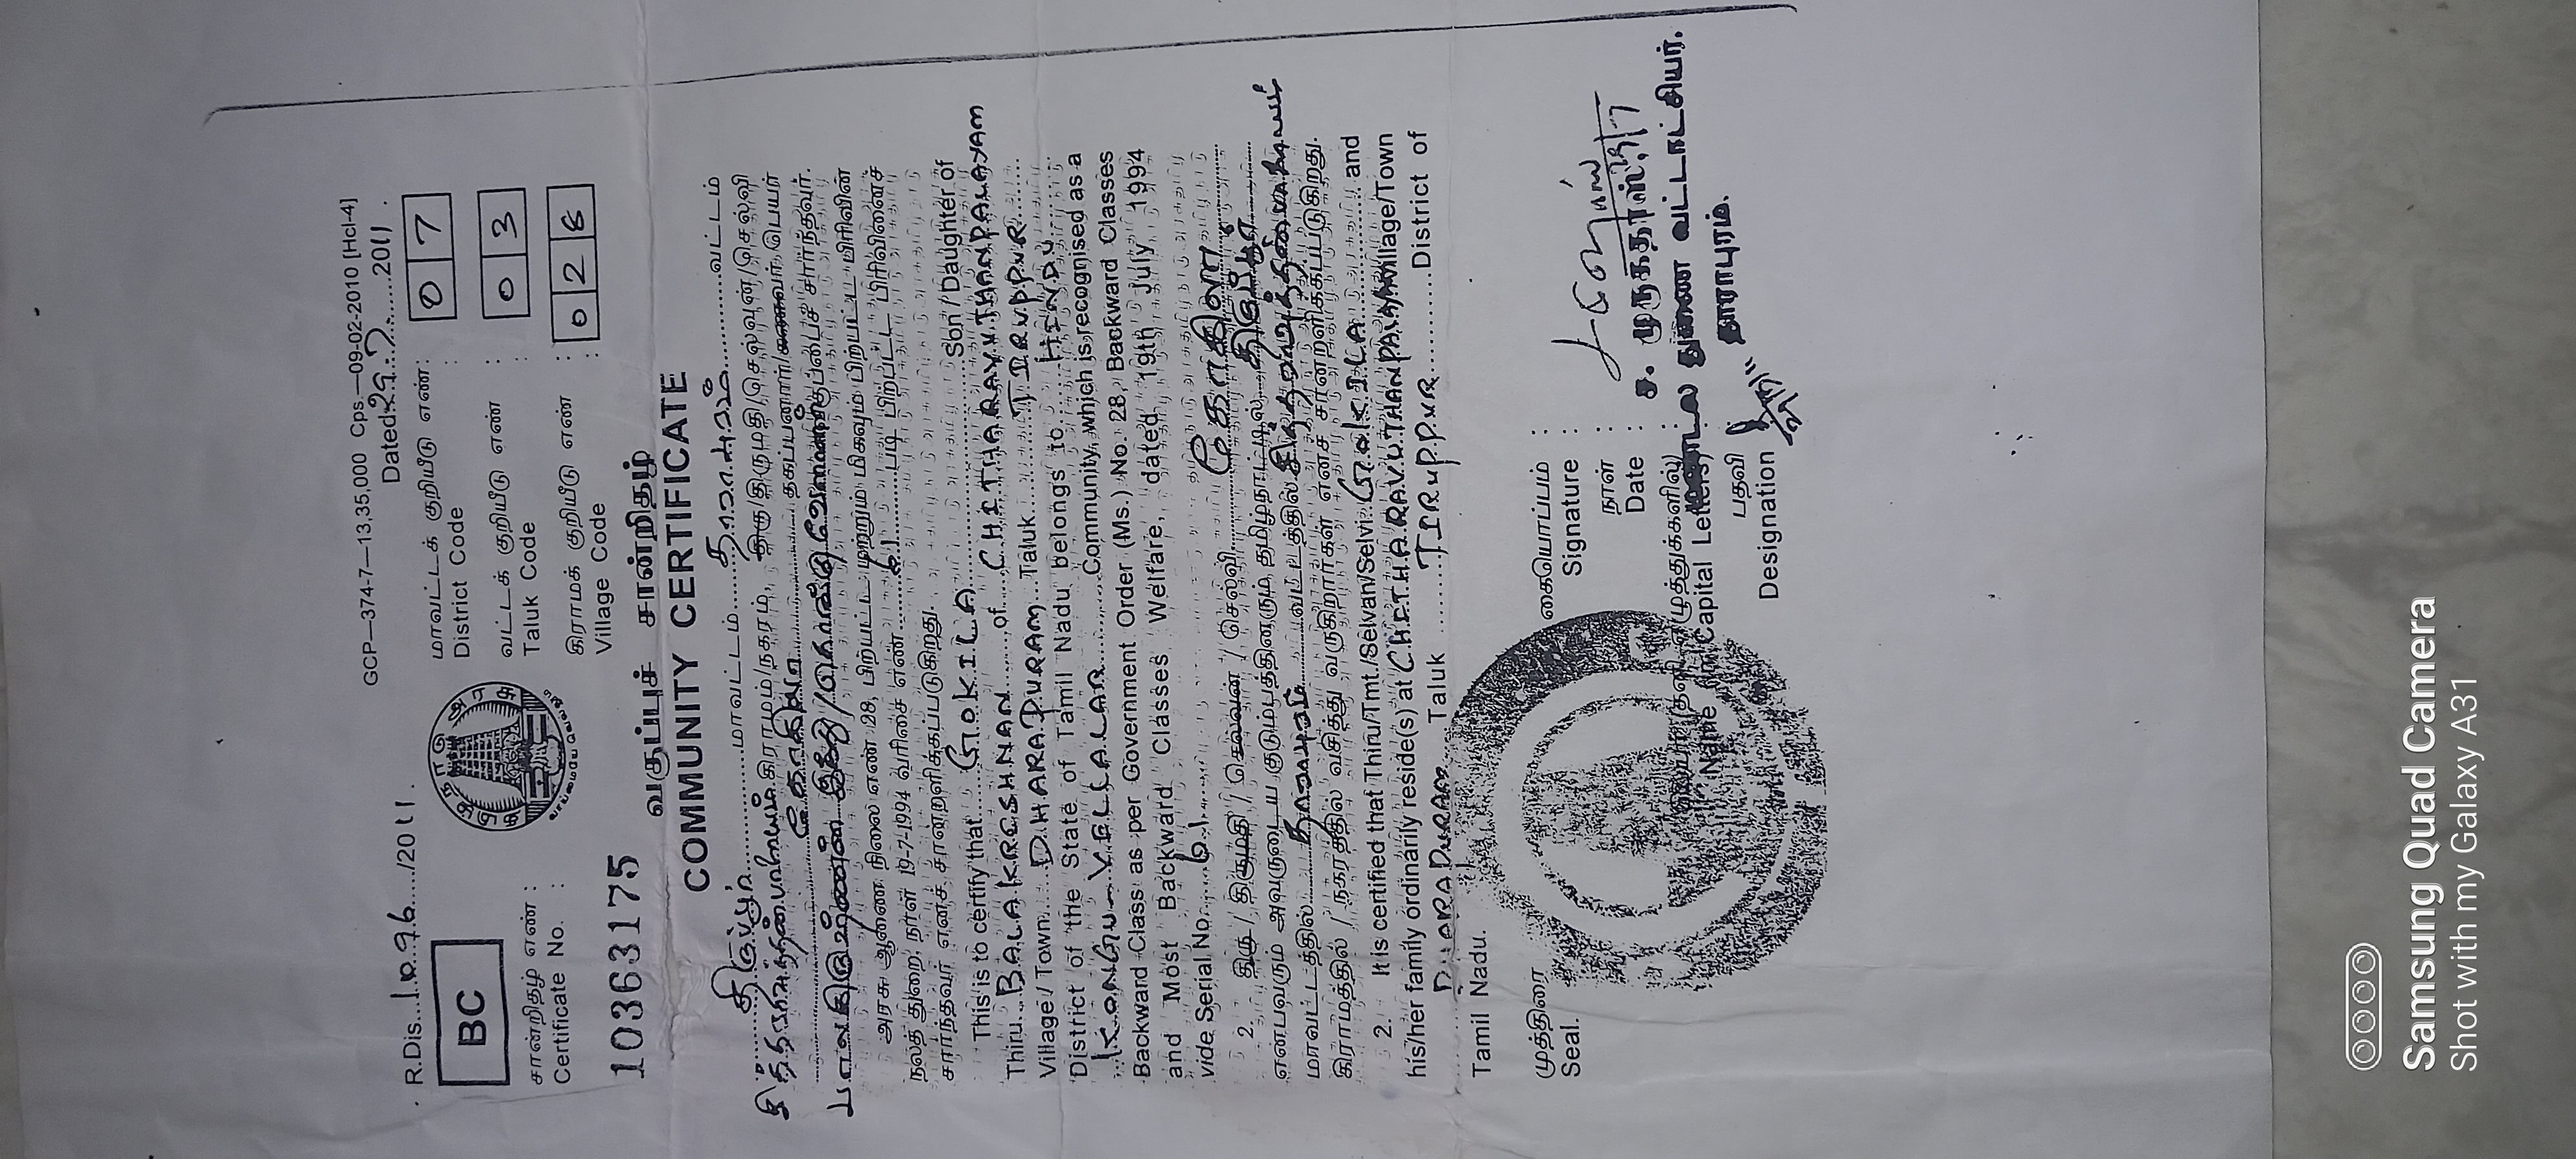 GCP—374-7—13,35,000 Cps.—09-02-2010 [Hcl-4]
R.Dis. 1096 /2011. Dated 29.7.2011.
BC
தமிழ்நாடு அரசு
வாய்மையே வெல்லும்
மாவட்டக் குறியீடு எண் :
District Code : 07
வட்டக் குறியீடு எண் :
Taluk Code : 03
கிராமக் குறியீடு எண் :
Village Code : 028
சான்றிதழ் எண் :
Certificate No. :
10363175
வகுப்புச் சான்றிதழ்
COMMUNITY CERTIFICATE
திருப்பூர் மாவட்டம் தாராபுரம் வட்டம்
கிராமம்/நகரம், திரு/திருமதி/செல்வன்/செல்வி
கோகிலா தகப்பனார்/கணவர் பெயர்
பாலகிருஷ்ணன் இந்து/கொங்கு வேளாளர் குலத்தைச் சார்ந்தவர்.
அரசு ஆணை நிலை எண் 28, பிற்பட்ட மற்றும் மிகவும் பிற்பட்ட பிரிவின்
நலத் துறை, நாள் 19-7-1994 வரிசை எண் 61 படி பிற்பட்ட பிரிவினைச்
சார்ந்தவர் எனச் சான்றளிக்கப்படுகிறது.
This is to certify that GOKILA Son / Daughter of
Thiru BALAKRISHNAN of CHITHARAVUTHANPALAYAM
Village / Town DHARAPURAM Taluk TIRUPPUR
District of the State of Tamil Nadu belongs to HINDU
KONGU-VELLALAR Community, which is recognised as a
Backward Class as per Government Order (Ms.) No. 28, Backward Classes
and Most Backward Classes Welfare, dated 19th July 1994
vide Serial No. 61
2. திரு / திருமதி / செல்வன் / செல்வி கோகிலா
என்பவரும் அவருடைய குடும்பத்தினரும் தமிழ்நாட்டில் திருப்பூர்
மாவட்டத்தில் தாராபுரம் வட்டத்தில்
கிராமத்தில் / நகரத்தில் வசித்து வருகிறார்கள் எனச் சான்றளிக்கப்படுகிறது.
2. It is certified that Thiru/Tmt./Selvan/Selvi GOKILA and
his/her family ordinarily reside(s) at CHITHARAVUTHANPALAYAM Village/Town
DHARAPURAM Taluk TIRUPPUR District of
Tamil Nadu.
முத்திரை
Seal.
கையொப்பம் :
Signature :
நாள் :
Date :
ச. முருகதாஸ்,
பெயர் (தனி எழுத்துக்களில்) :
Name (in Capital Letters)
மண்டல துணை வட்டாட்சியர்.
பதவி
Designation
தாராபுரம்.
Samsung Quad Camera
Shot with my Galaxy A31